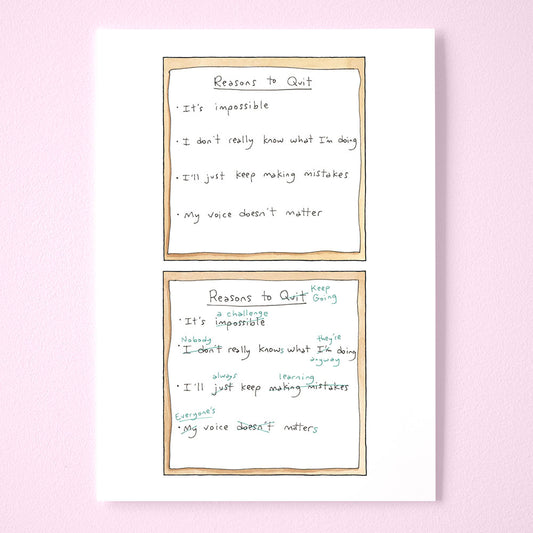 Reasons to Quit
• It's impossible
• I don't really know what I'm doing
• I'll just keep making mistakes
• My voice doesn't matter
Reasons to Quit Keep
Going
a challenge
• It's impossible
Nobody they're
• I don't really knows what I'm doing
anyway
always learning
• I'll just keep making mistakes
Everyone's
• My voice doesn't matters